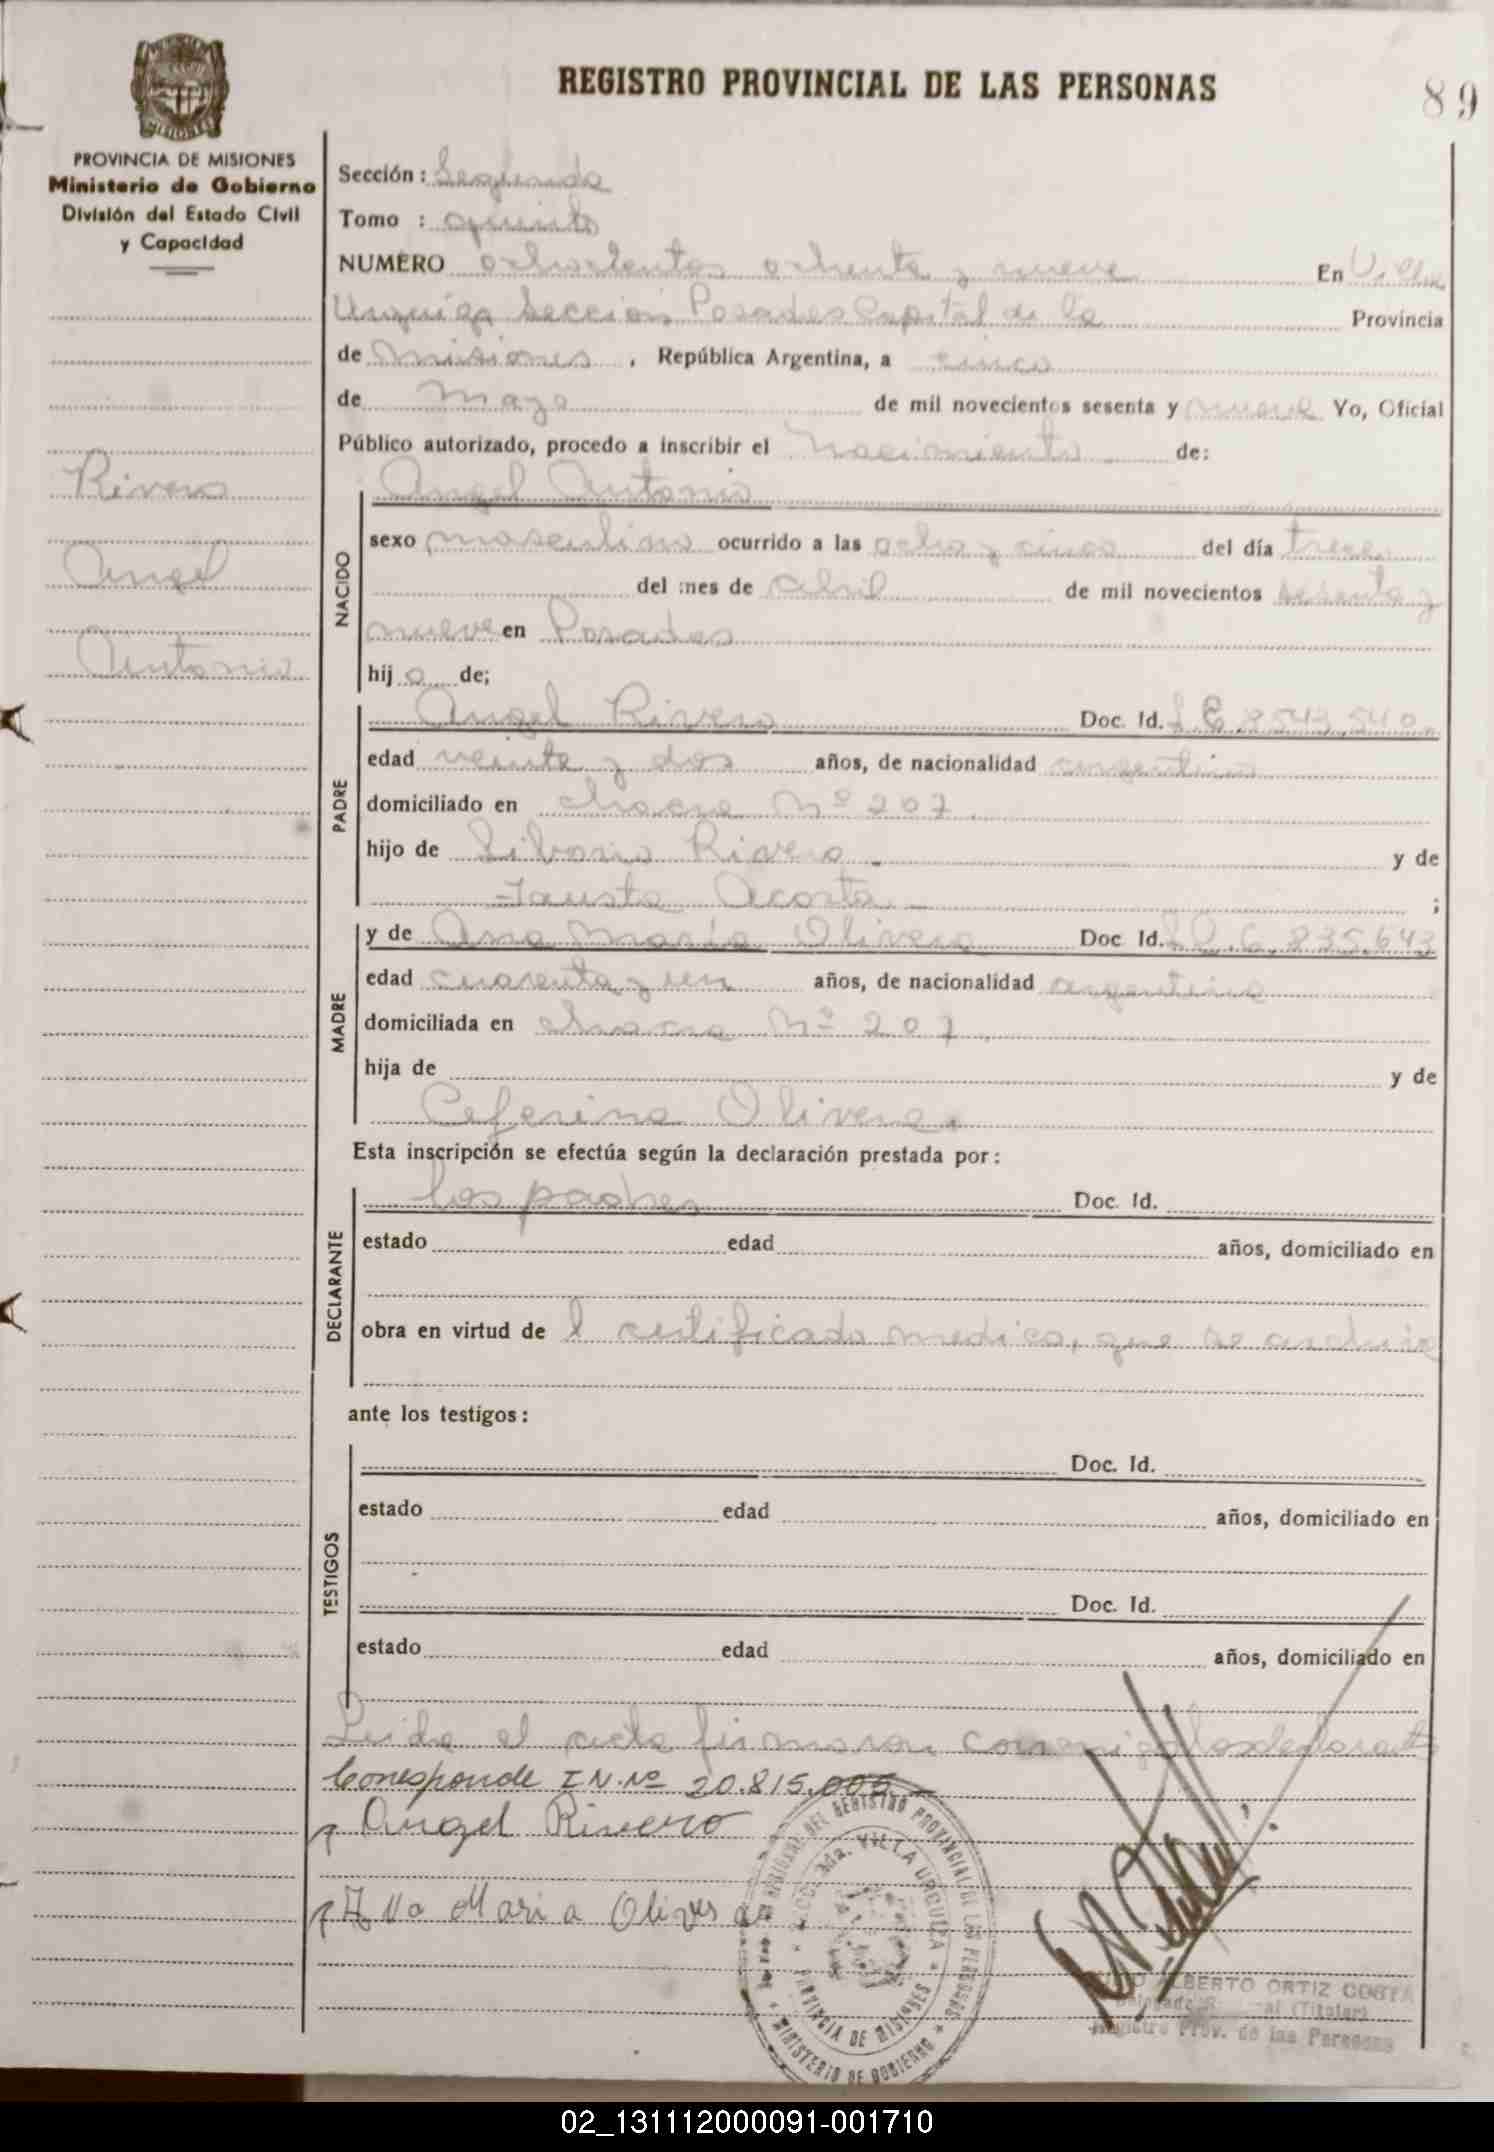 REGISTRO PROVINCIAL DE LAS PERSONAS
89
PROVINCIA DE MISIONES
Ministerio de Gobierno
División del Estado Civil
y Capacidad
Rivero
Angel
Antonio
Sección: Segunda
Tomo : quinto
NUMERO ochocientos ochenta y nueve En Villa
Urquiza Sección Posadas Capital de la Provincia
de Misiones , República Argentina, a cinco
de Mayo de mil novecientos sesenta y nueve Yo, Oficial
Público autorizado, procedo a inscribir el Nacimiento de:
NACIDO
Angel Antonio
sexo masculino ocurrido a las ocho y cinco del día trece
del mes de Abril de mil novecientos sesenta y
nueve en Posadas
hij o de;
PADRE
Angel Rivero Doc. Id. L.E. 8543.540
edad veinte y dos años, de nacionalidad argentino
domiciliado en chacra Nº 207
hijo de Liborio Rivero y de
Fausta Acosta ;
MADRE
y de Ana María Olivera Doc Id. L.C. 6.835.643
edad cuarenta y un años, de nacionalidad argentina
domiciliada en chacra Nº 207
hija de y de
Ceferina Olivera.
Esta inscripción se efectúa según la declaración prestada por:
DECLARANTE
los padres Doc. Id.
estado edad años, domiciliado en
obra en virtud de l certificado medico, que se archiva
ante los testigos:
TESTIGOS
Doc. Id.
estado edad años, domiciliado en
Doc. Id.
estado edad años, domiciliado en
Leida el acta firmaron conmigo los declarantes
Corresponde I.N.Nº 20.815.005
Angel Rivero
Ana Maria Olivera
REGISTRO PROVINCIAL DE LAS PERSONAS
VILLA URQUIZA
PROVINCIA DE MISIONES
MINISTERIO DE GOBIERNO
ALBERTO ORTIZ COSTA
Delegado (Titular)
Registro Prov. de las Personas
02_131112000091-001710